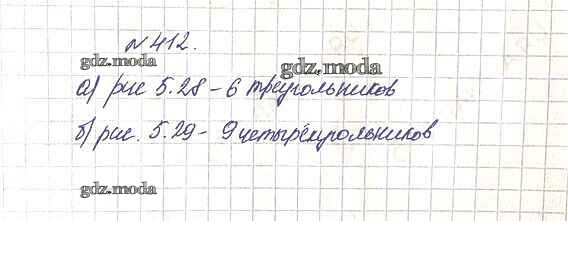 №412.
gdz.moda
gdz.moda
а) рис 5.28 – 6 треугольников
б) рис. 5.29 – 9 четырёхугольников
gdz.moda